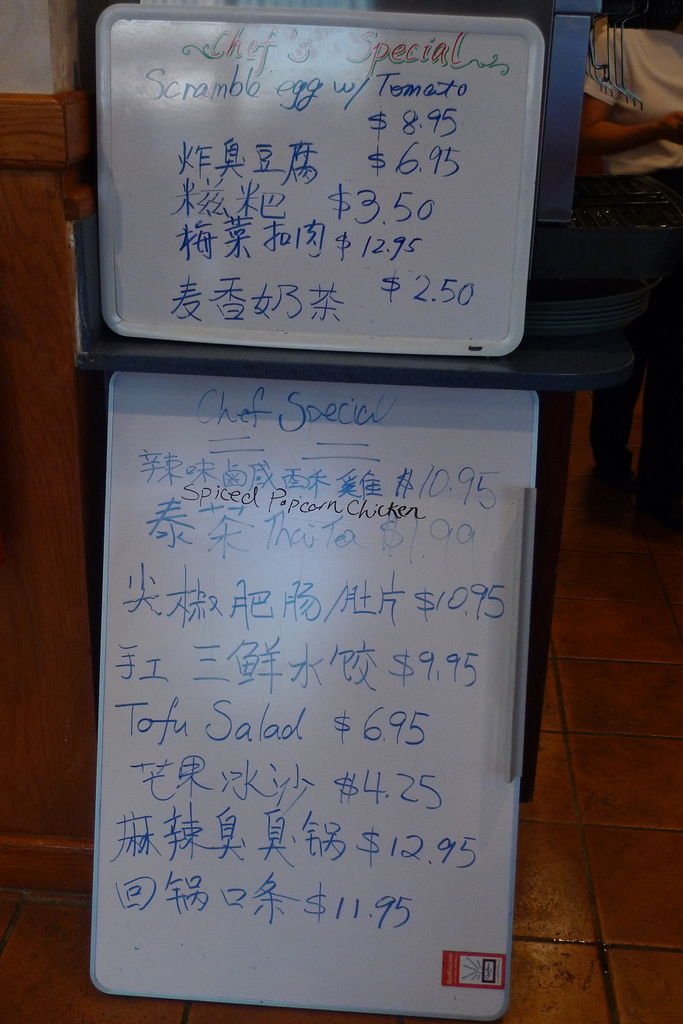 Chef's Special
Scramble egg w/ Tomato
$8.95
炸臭豆腐 $6.95
糍粑 $3.50
梅菜扣肉 $12.95
麦香奶茶 $2.50
Chef Special
辣味鹹酥雞 $10.95
Spiced Popcorn Chicken
泰茶 Thai Tea $1.99
尖椒肥肠/肚片 $10.95
手工 三鲜水饺 $9.95
Tofu Salad $6.95
芒果冰沙 $4.25
麻辣臭臭锅 $12.95
回锅口条 $11.95